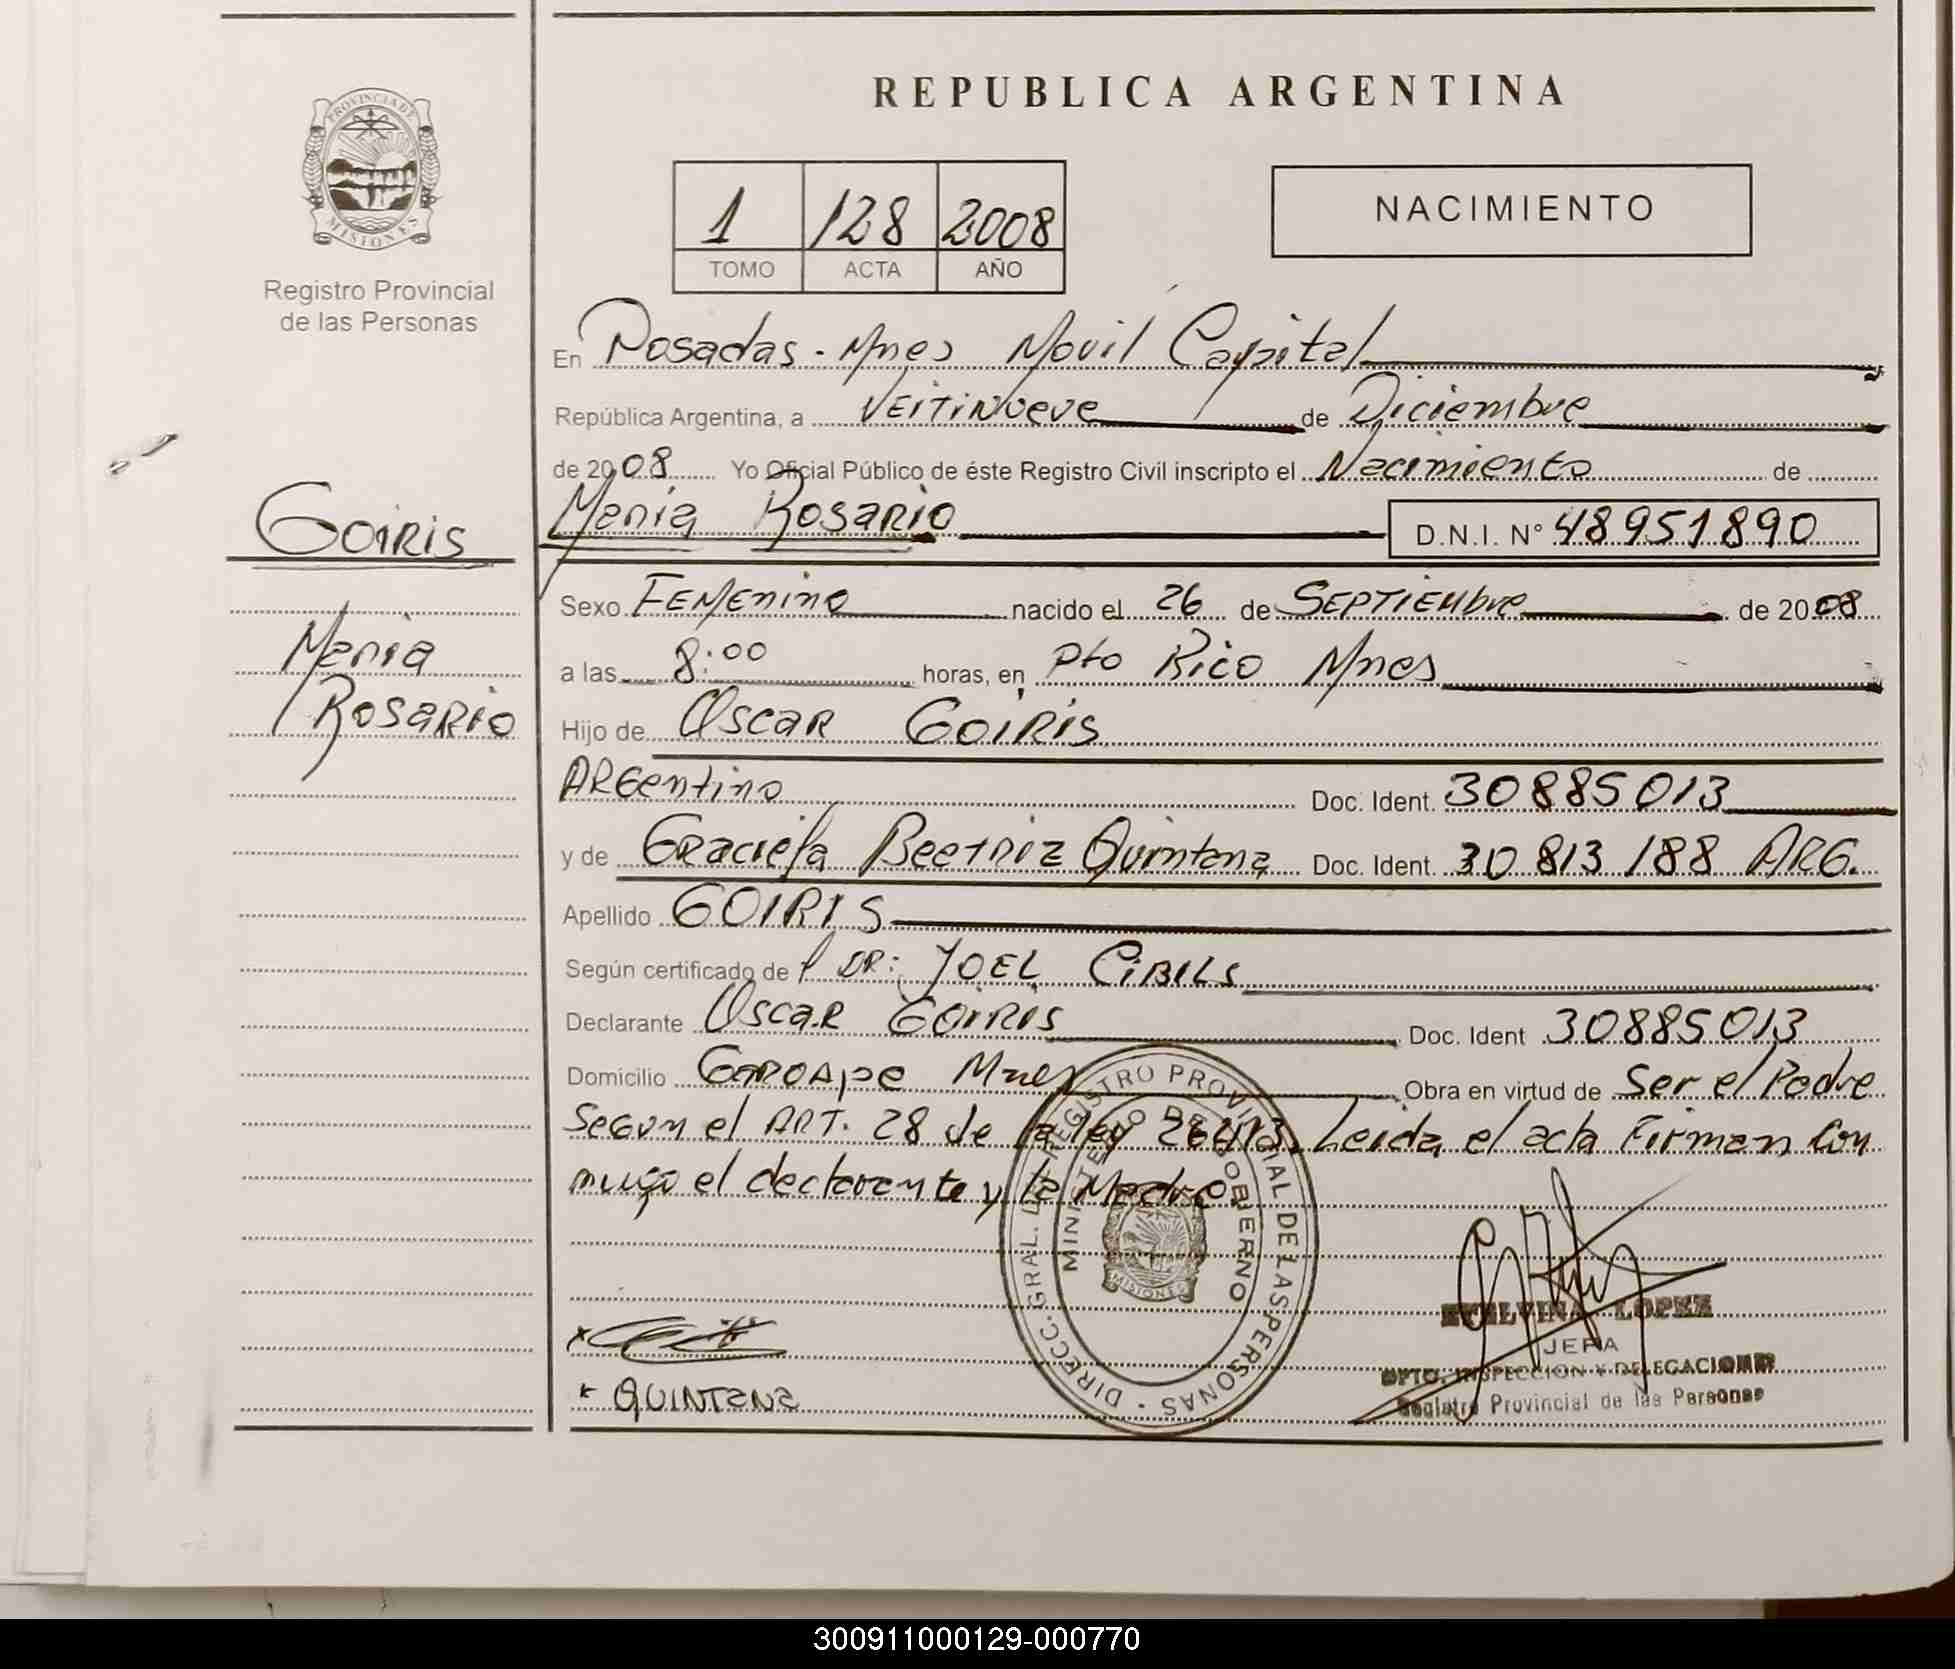 REPUBLICA ARGENTINA
PROVINCIA DE
MISIONES
Registro Provincial
de las Personas
1 128 2008
TOMO ACTA AÑO
NACIMIENTO
En Posadas - Mnes Movil Capital
República Argentina, a Veitinueve de Diciembre
de 2008 Yo Oficial Público de éste Registro Civil inscripto el Nacimiento de
Goiris
Maria Rosario D.N.I. N° 48951890
Sexo Femenino nacido el 26 de Septiembre de 2008
Maria
Rosario
a las 8:00 horas, en Pto Rico Mnes
Hijo de Oscar Goiris
Argentino Doc. Ident. 30885013
y de Graciela Beatriz Quintana Doc. Ident. 30 813 188 ARG.
Apellido GOIRIS
Según certificado de DR: JOEL CIBILS
Declarante Oscar Goiris Doc. Ident 30885013
Domicilio Garoape Mnes Obra en virtud de Ser el Padre
Segun el ART. 28 de la ley 26413. Leida el acta Firman Con
migo el declarante y la Madre
DIRECC. GRAL. DE REGISTRO PROVINCIAL DE LAS PERSONAS
MINISTERIO DE GOBIERNO
MISIONES
ETELVINA LOPEZ
JEFA
DPTO. INSPECCION Y DELEGACIONES
Registro Provincial de las Personas
x
x QUINTANA
300911000129-000770